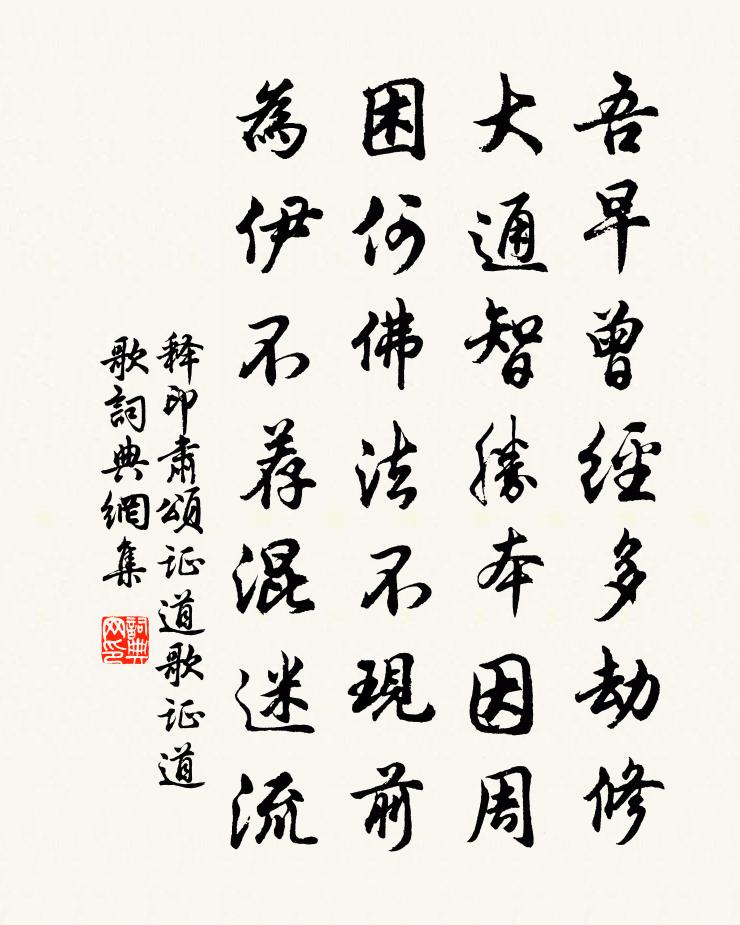 吾早曾經多劫修
大通智勝本因周
困何佛法不現前
為伊不荐混迷流
释印肃頌证道歌证道
歌詞典網集
詞典网印